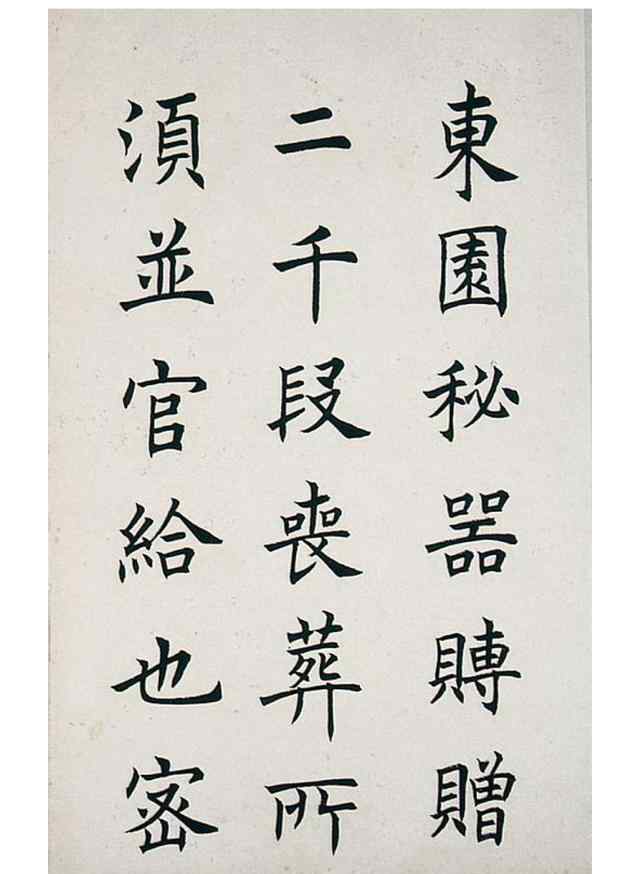 東園秘器賻贈
二千段喪葬所
須並官給也密